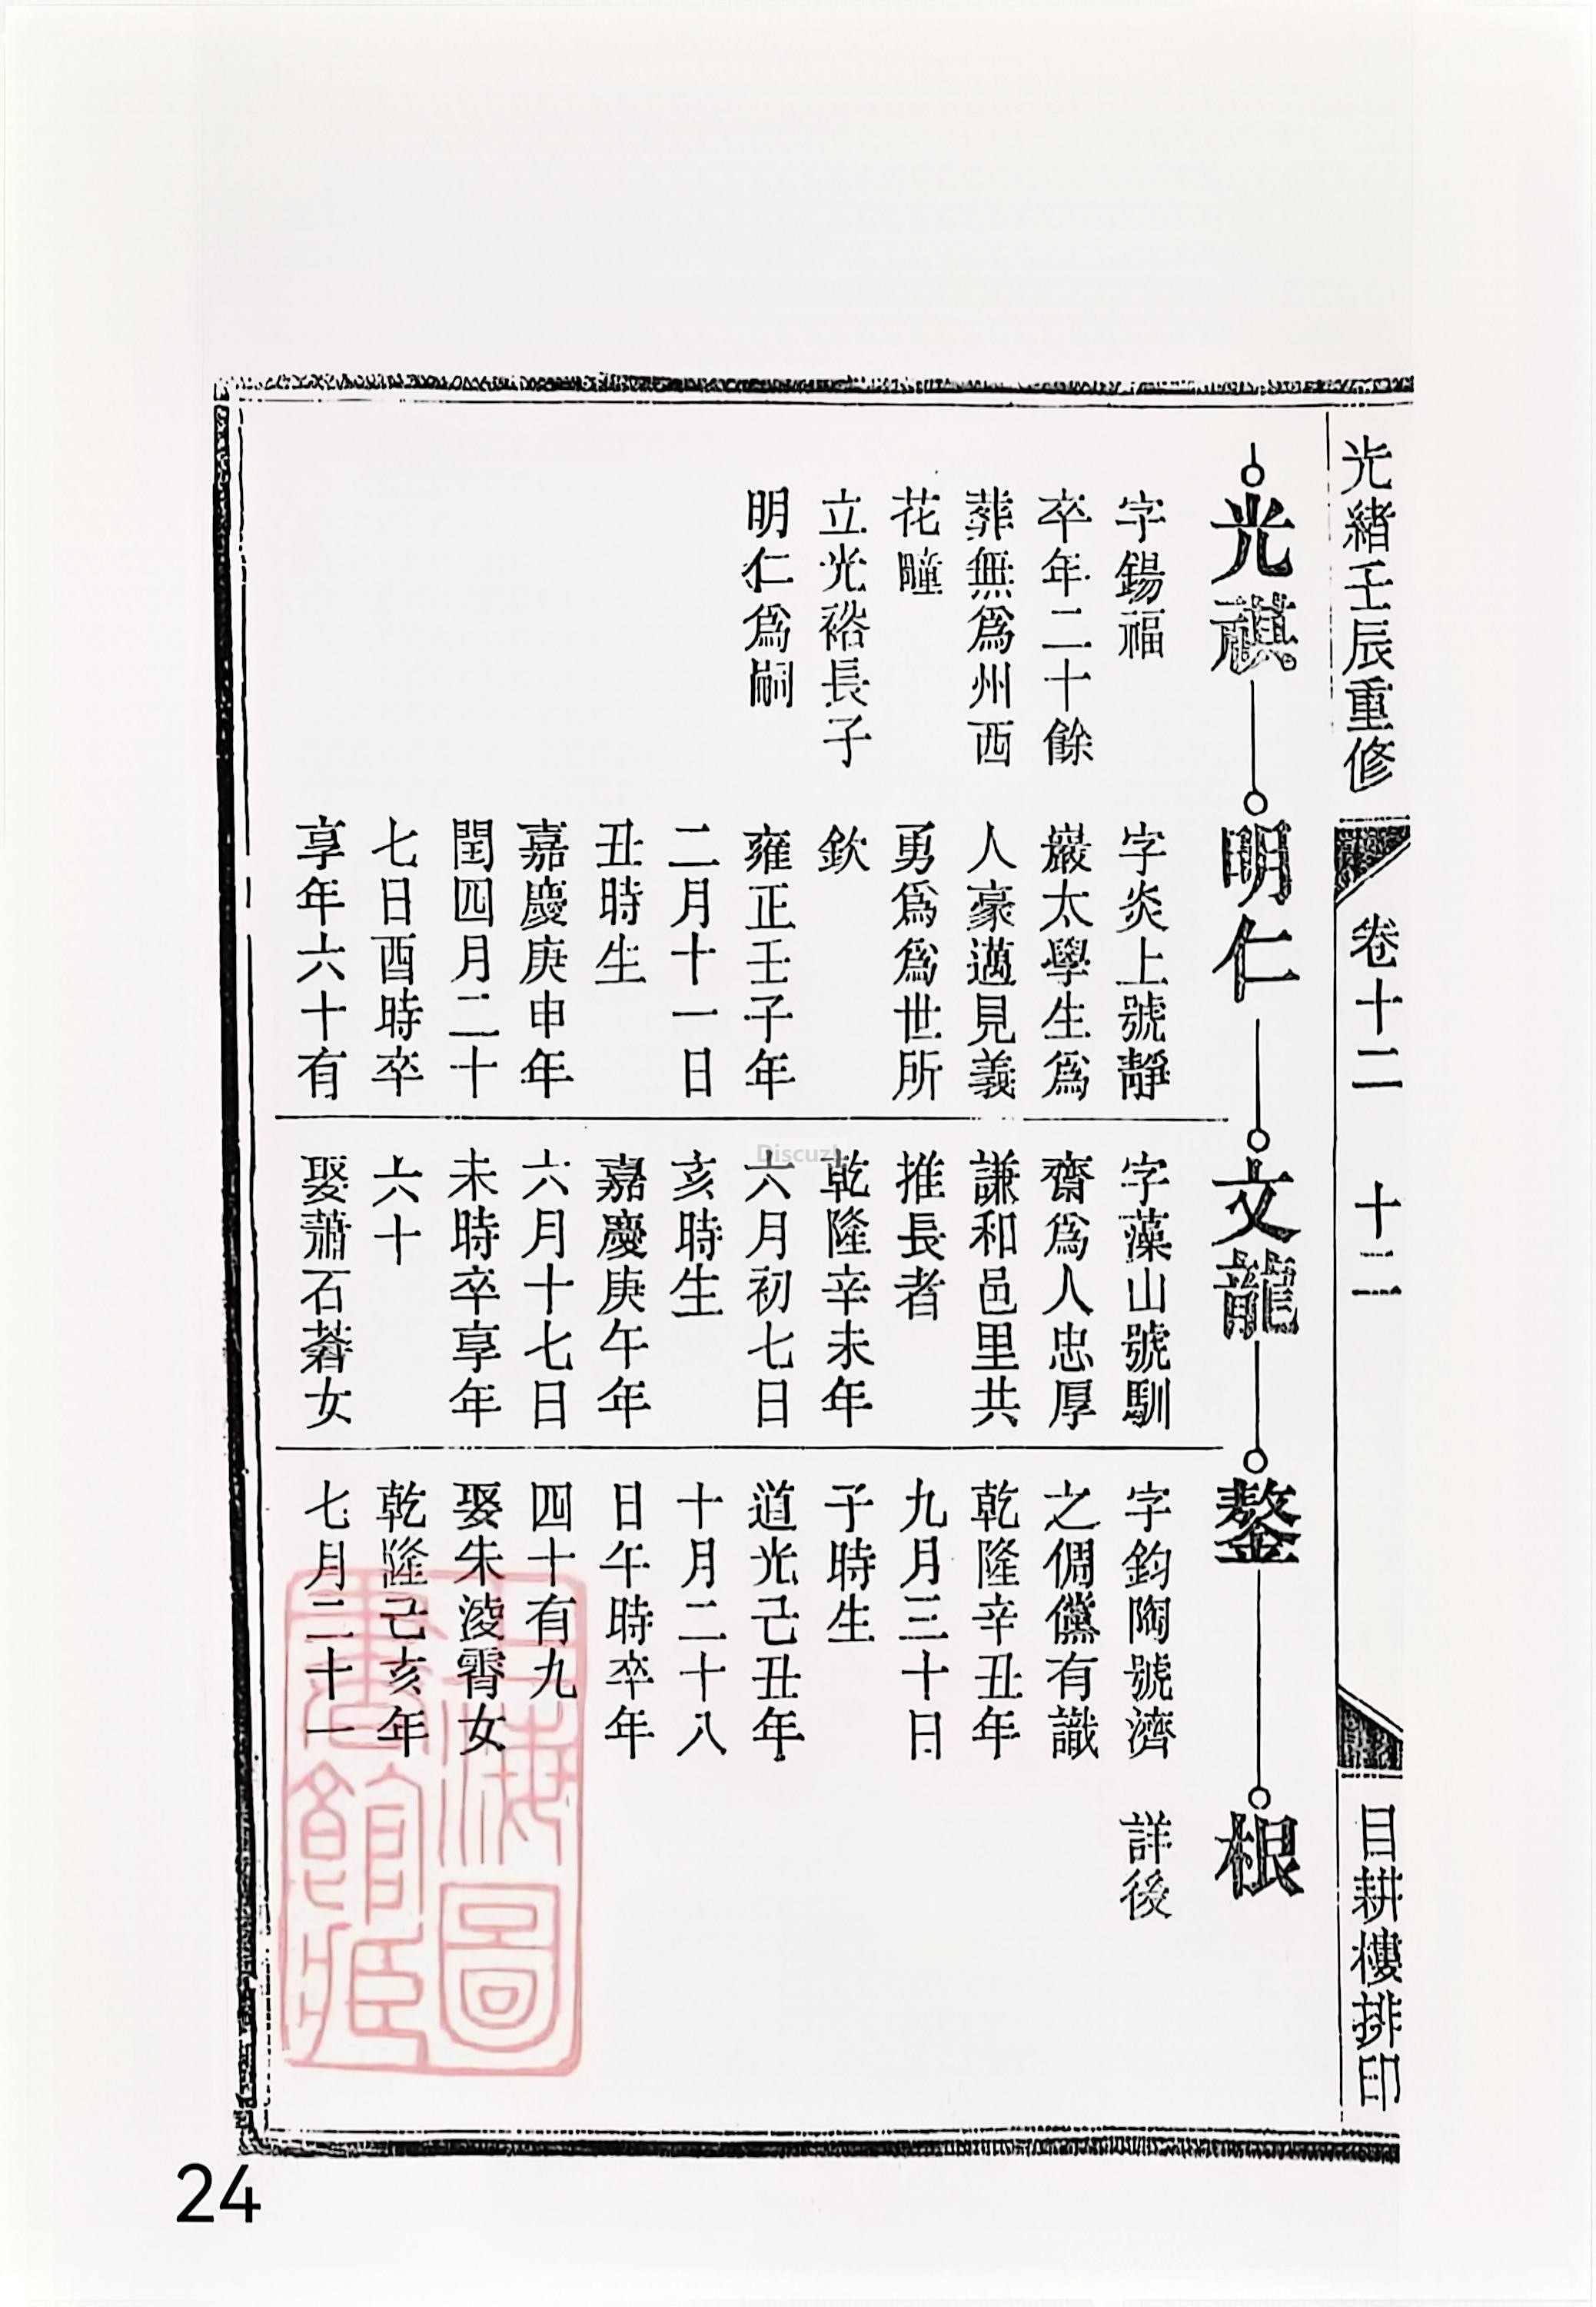 光緒壬辰重修
卷十二
十二
目耕樓排印
光祺
字錫福
卒年二十餘
葬無爲州西
花疃
立光裕長子
明仁爲嗣
明仁
字炎上號靜
巖太學生爲
人豪邁見義
勇爲爲世所
欽
雍正壬子年
二月十一日
丑時生
嘉慶庚申年
閏四月二十
七日酉時卒
享年六十有
文龍
字藻山號馴
齋爲人忠厚
謙和邑里共
推長者
乾隆辛未年
六月初七日
亥時生
嘉慶庚午年
六月十七日
未時卒享年
六十
娶蕭石菴女
鏊
字鈞陶號濟
之倜儻有識
乾隆辛丑年
九月三十日
子時生
道光己丑年
十月二十八
日午時卒年
四十有九
娶朱淩霄女
乾隆己亥年
七月二十一
根
詳後
上海圖
書館藏
Discuz!
24